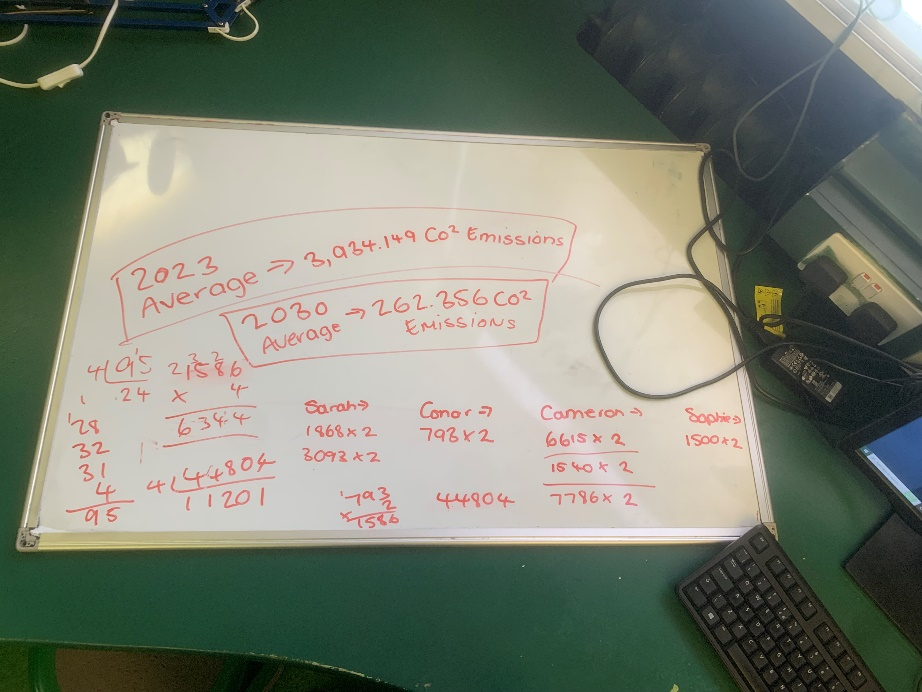 2023
Average → 3,934.149 CO² Emissions
2030
Average → 262.356 CO²
Emissions
4 95
24
1
28
32
31
4
95
21586
x 4
6344
4 44804
11201
Sarah →
1868 x 2
3093 x 2
793
x 2
1586
Conor →
793 x 2
44804
Cameron →
6615 x 2
1540 x 2
7786 x 2
Sophie →
1500 x 2